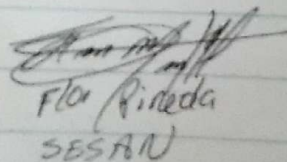 Flor Pineda
SESAN